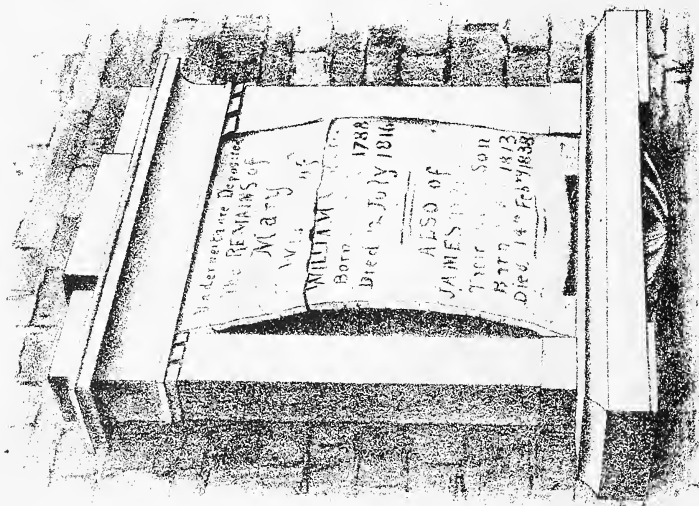 Underneith are Deposited
The REMAINS of
Mary
Wife of
WILLIAM
Born 1788
Died July 1816
ALSO of
JAMES
Their Son
Born 1813
Died 14th Febry 1838